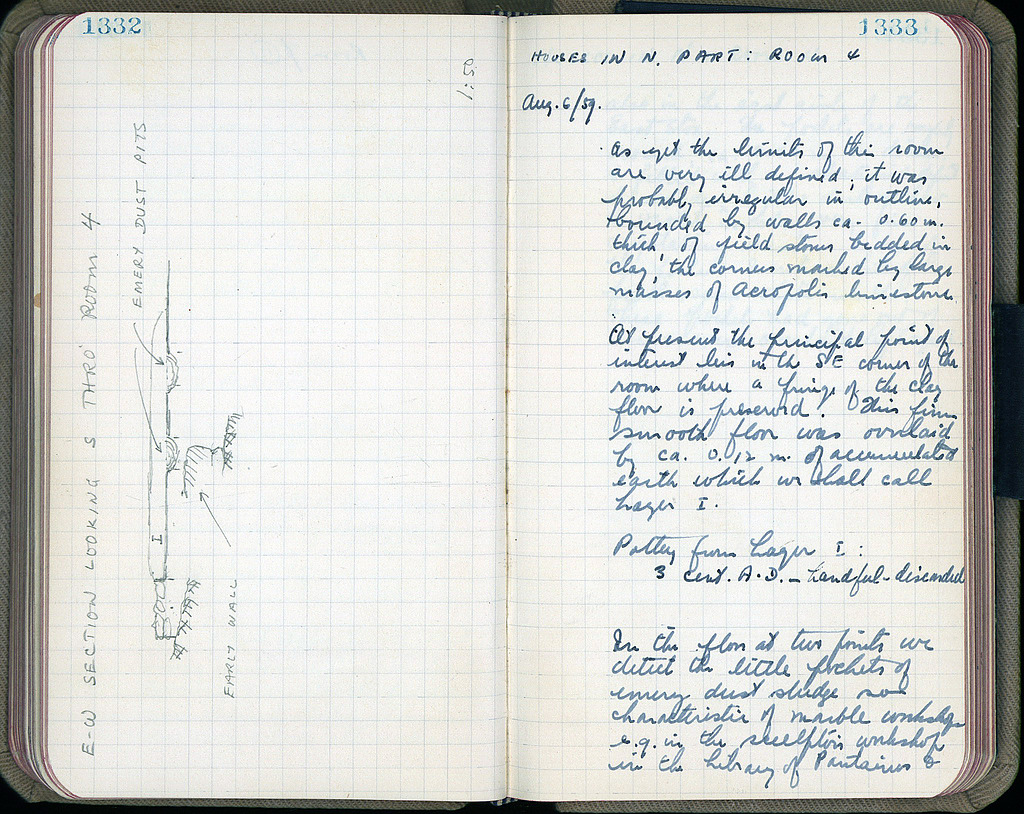 1332
E-W SECTION LOOKING S THRO' ROOM 4
EMERY DUST PITS
I
EARLY WALL
1:50
1333
HOUSES IN N. PART: ROOM 4
Aug. 6/59.
As yet the limits of this room
are very ill defined; it was
probably irregular in outline,
bounded by walls ca. 0.60 m.
thick, of field stones bedded in
clay, the corners marked by large
masses of Acropolis limestone.
At present the principal point of
interest lies in the SE corner of the
room where a fringe of the clay
floor is preserved. This firm
smooth floor was overlaid
by ca. 0.12 m. of accumulated
earth which we shall call
Layer I.
Pottery from Layer I:
3 cent. A.D. - handful - discarded
In the floor at two points we
detect the little pockets of
emery dust sludge so
characteristic of marble workshops
e.g. in the sculptors workshop
in the Library of Pantainos &